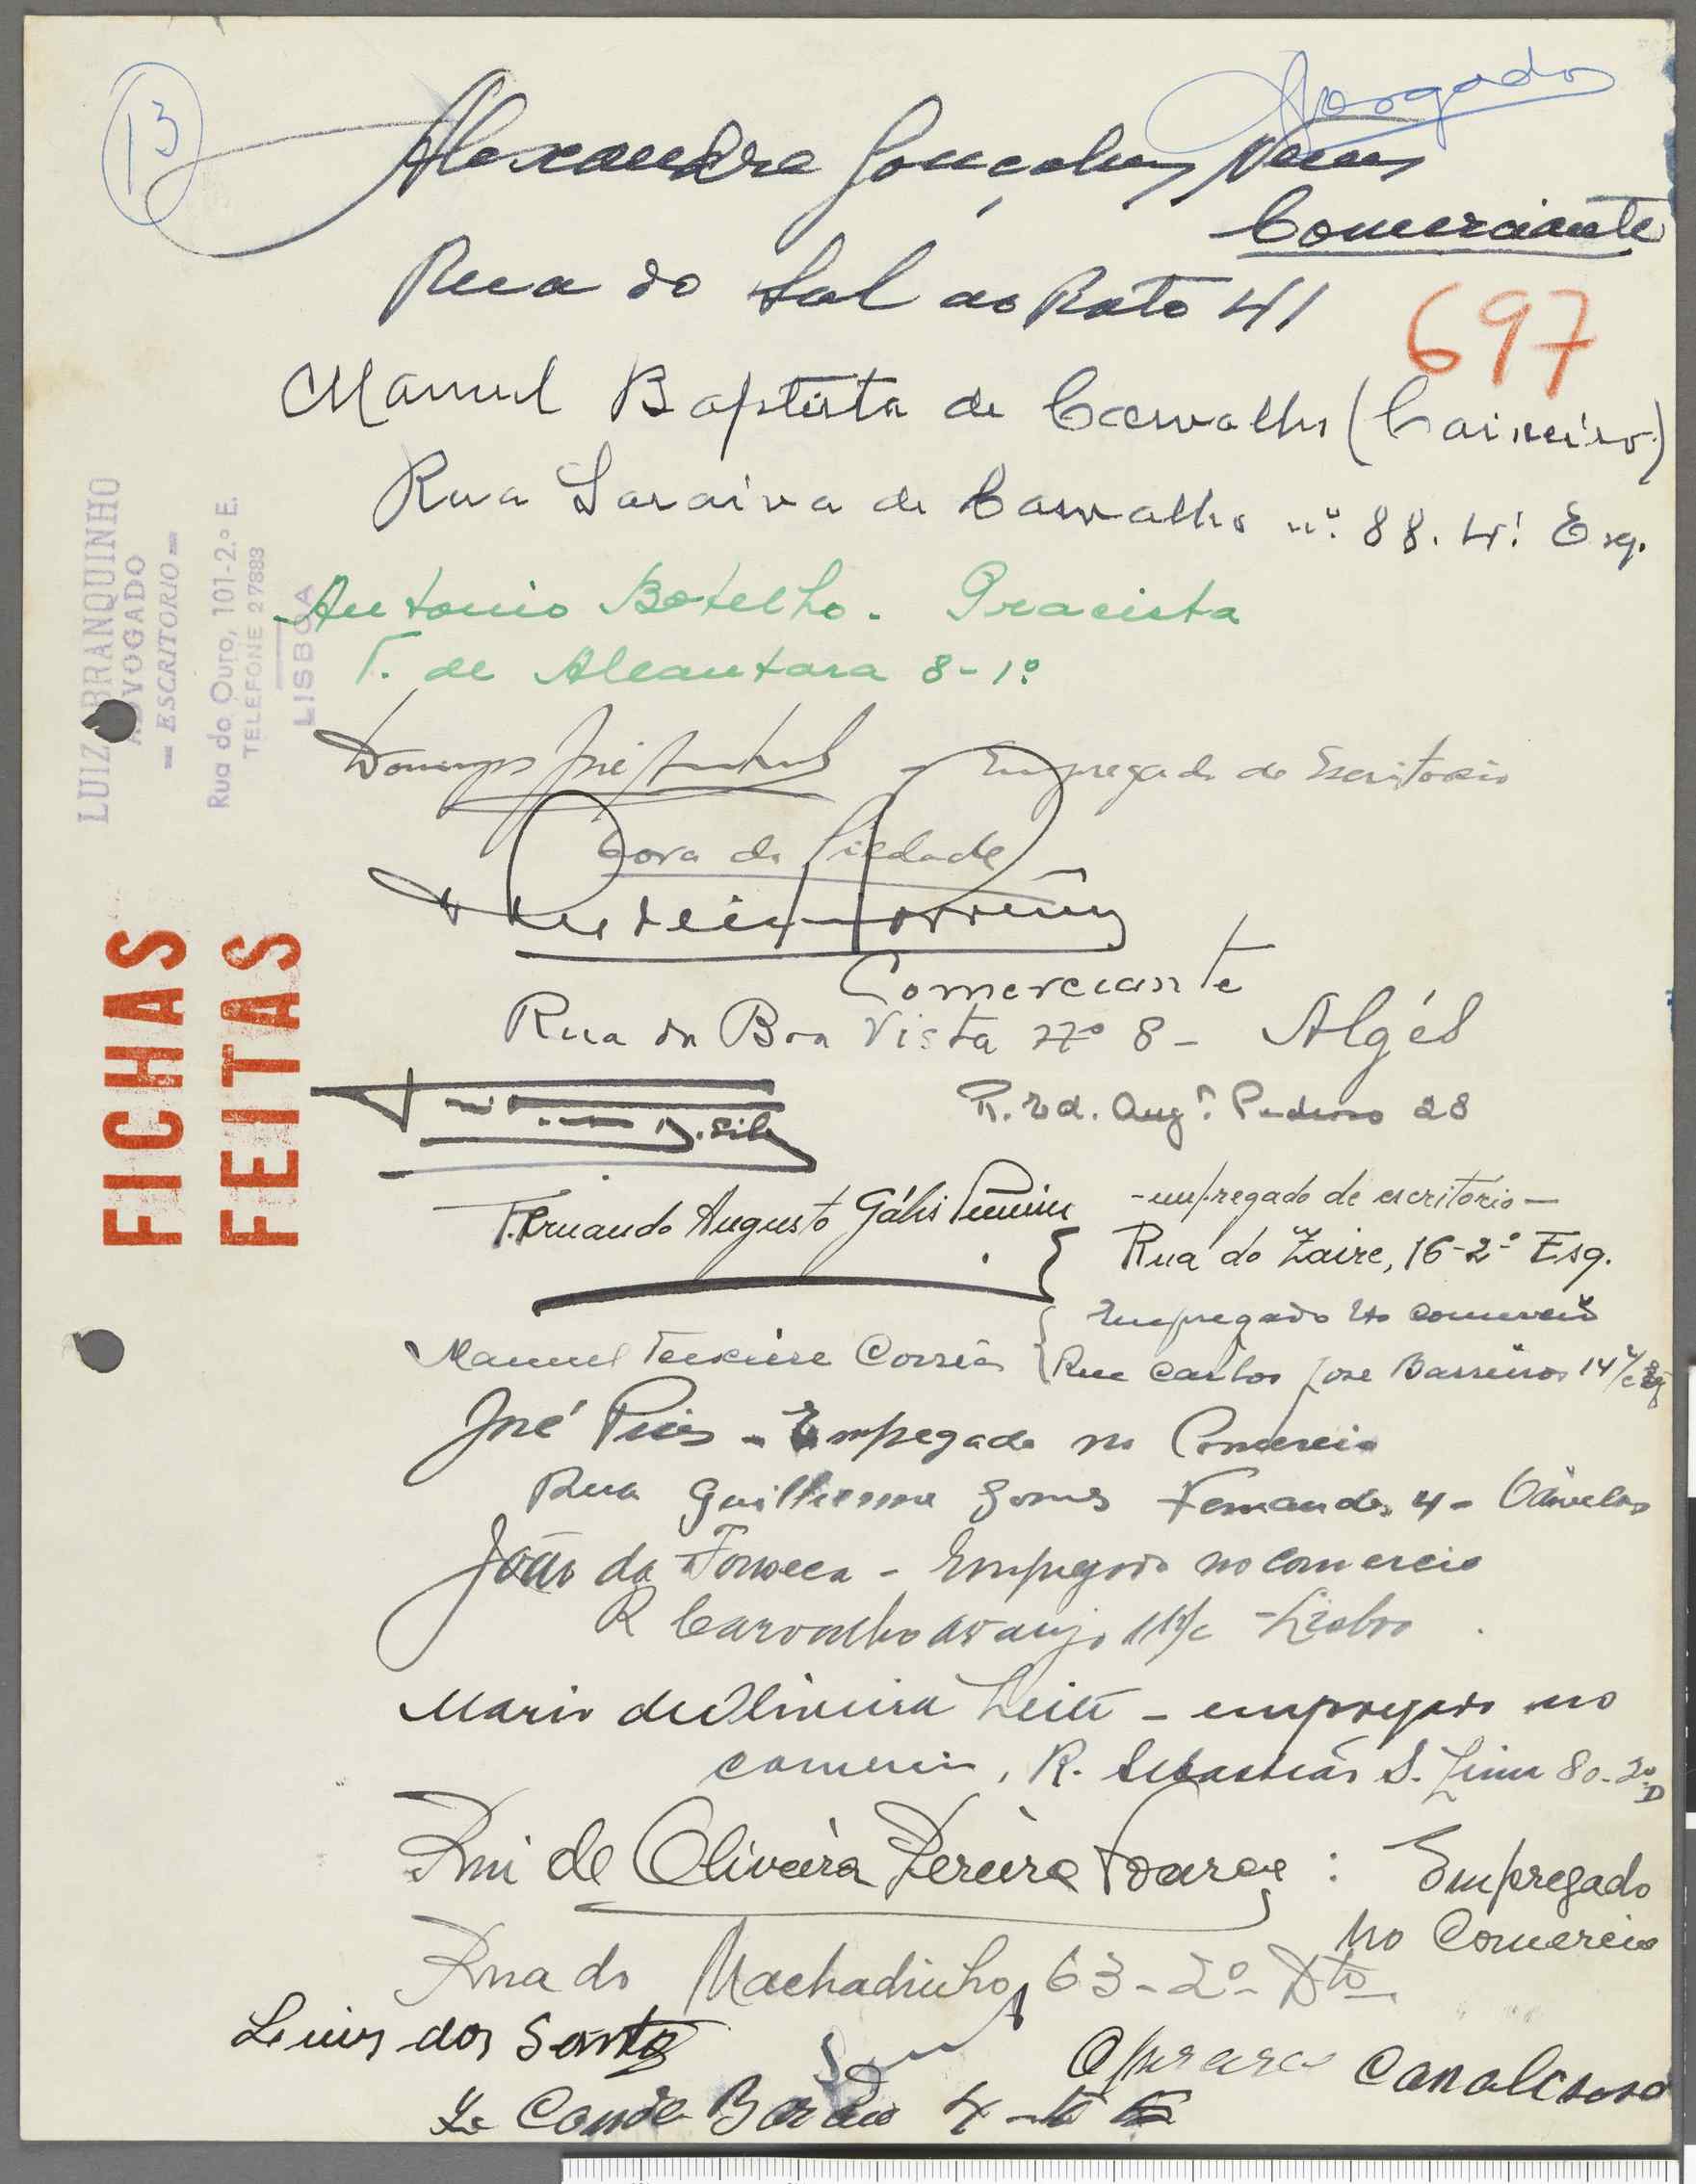 13
Alexandre Gonçalves Neves
Comerciante
Rua do Sol ao Rato 41
697
Manuel Baptista de Carvalho (Caixeiro)
Rua Saraiva de Carvalho nº 88. 4º Esq.
Antonio Botelho. Pracista
T. de Alcantara 8-1º
Domingos José - Empregado de Escritorio
Cova da Piedade
Comerciante
Rua da Boa Vista nº 8 - Algés
R. Pedroso 28
Fernando Augusto - empregado de escritorio -
Rua do Zaire, 16-2º Esq.
Empregado no comercio
Manuel Teixeira Correia Rua Carlos José Barreiros 14
José Pires - Empegado no Comercio
Rua Guilherme Gomes Fernandes 4 - Odivelas
João da Fonseca - Empregado no comercio
R Carvalho Araujo - Lisboa
Mario de Oliveira Leite - empregado no
comercio, R. Sebastião S. Lima 80-2º D
Rui de Oliveira Pereira Soares : Empregado
no Comercio
Rua do Machadinho, 63-2º Dto
Luis dos Santos
Operario Canalisador
Conde Barão 4
LUIZ BRANQUINHO
ADVOGADO
— ESCRITORIO —
Rua do Ouro, 101-2.º E.
TELEFONE 27883
LISBOA
FICHAS
FEITAS